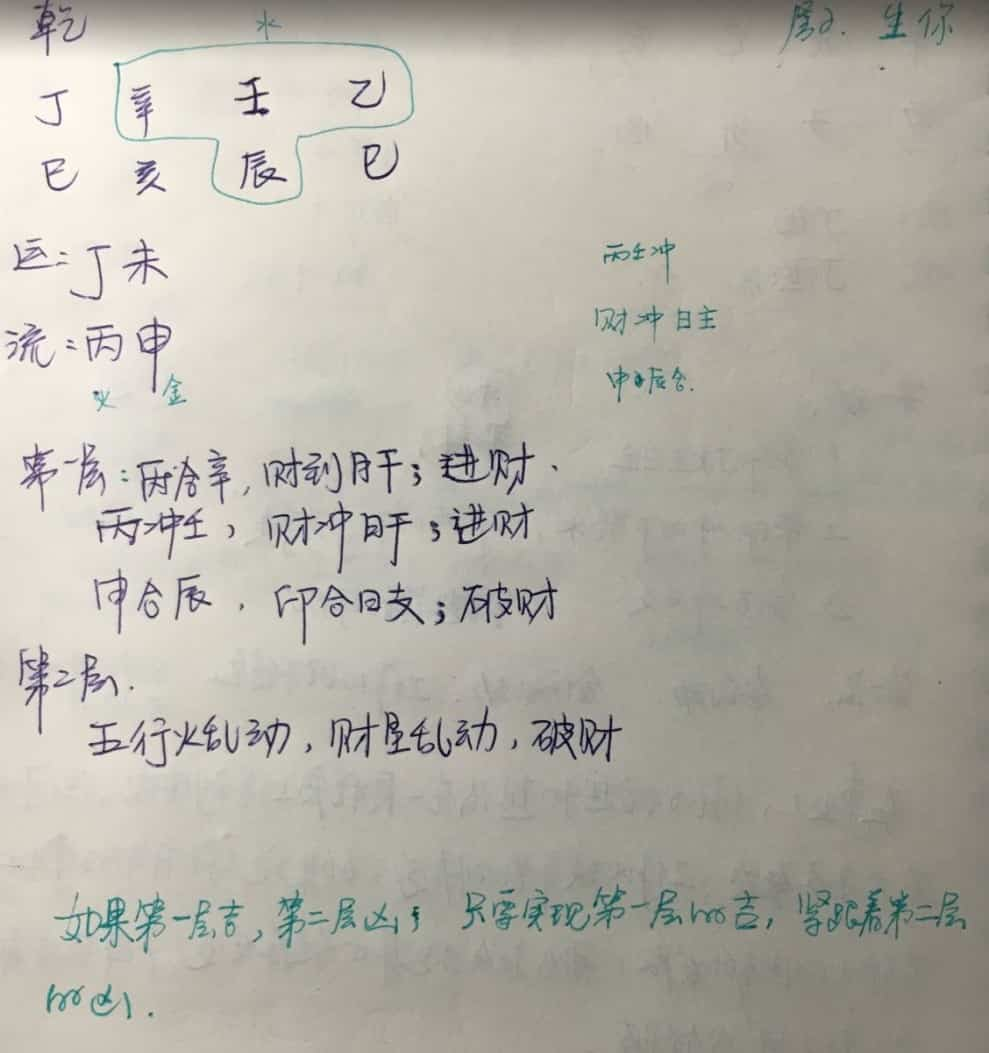 乾 水 生你
丁 辛 壬 乙
巳 亥 辰 巳
运：丁未
丙壬冲
流：丙申
财冲日主
火 金
申辰合.
第一层：丙合辛，财到月干；进财.
丙冲壬，财冲日干；进财
申合辰，印合日支；破财
第二层.
五行火乱动，财星乱动，破财
如果第一层吉，第二层凶；只要实现第一层的吉，紧跟着第二层
的凶.